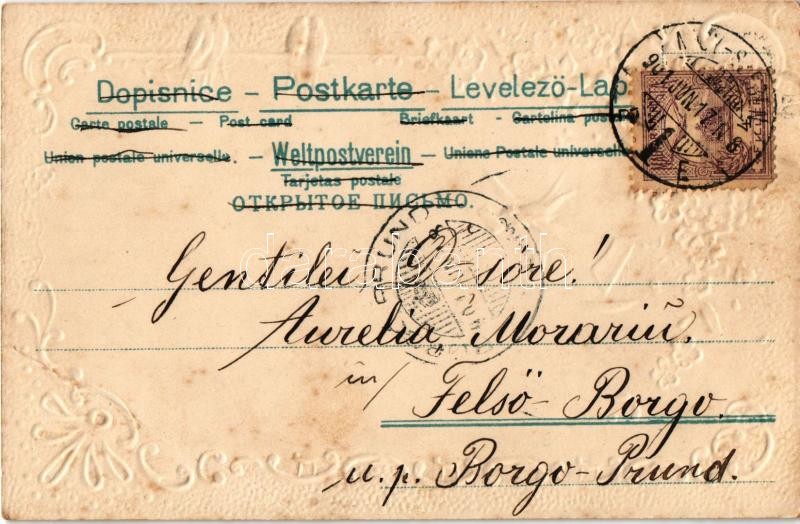 Dopisnice – Postkarte – Levelezö-Lap
Carte postale – Post card Briefkaart – Cartolina postale
Union postale universelle. – Weltpostverein – Unione Postale universelle
Tarjetas postale
ОТКРЫТОЕ ПИСЬМО.
Gentilei D sore!
Aurelia Morariŭ.
in
Felsö-Borgo.
u.p. Borgo-Prund.
PRUND
darabanth.com